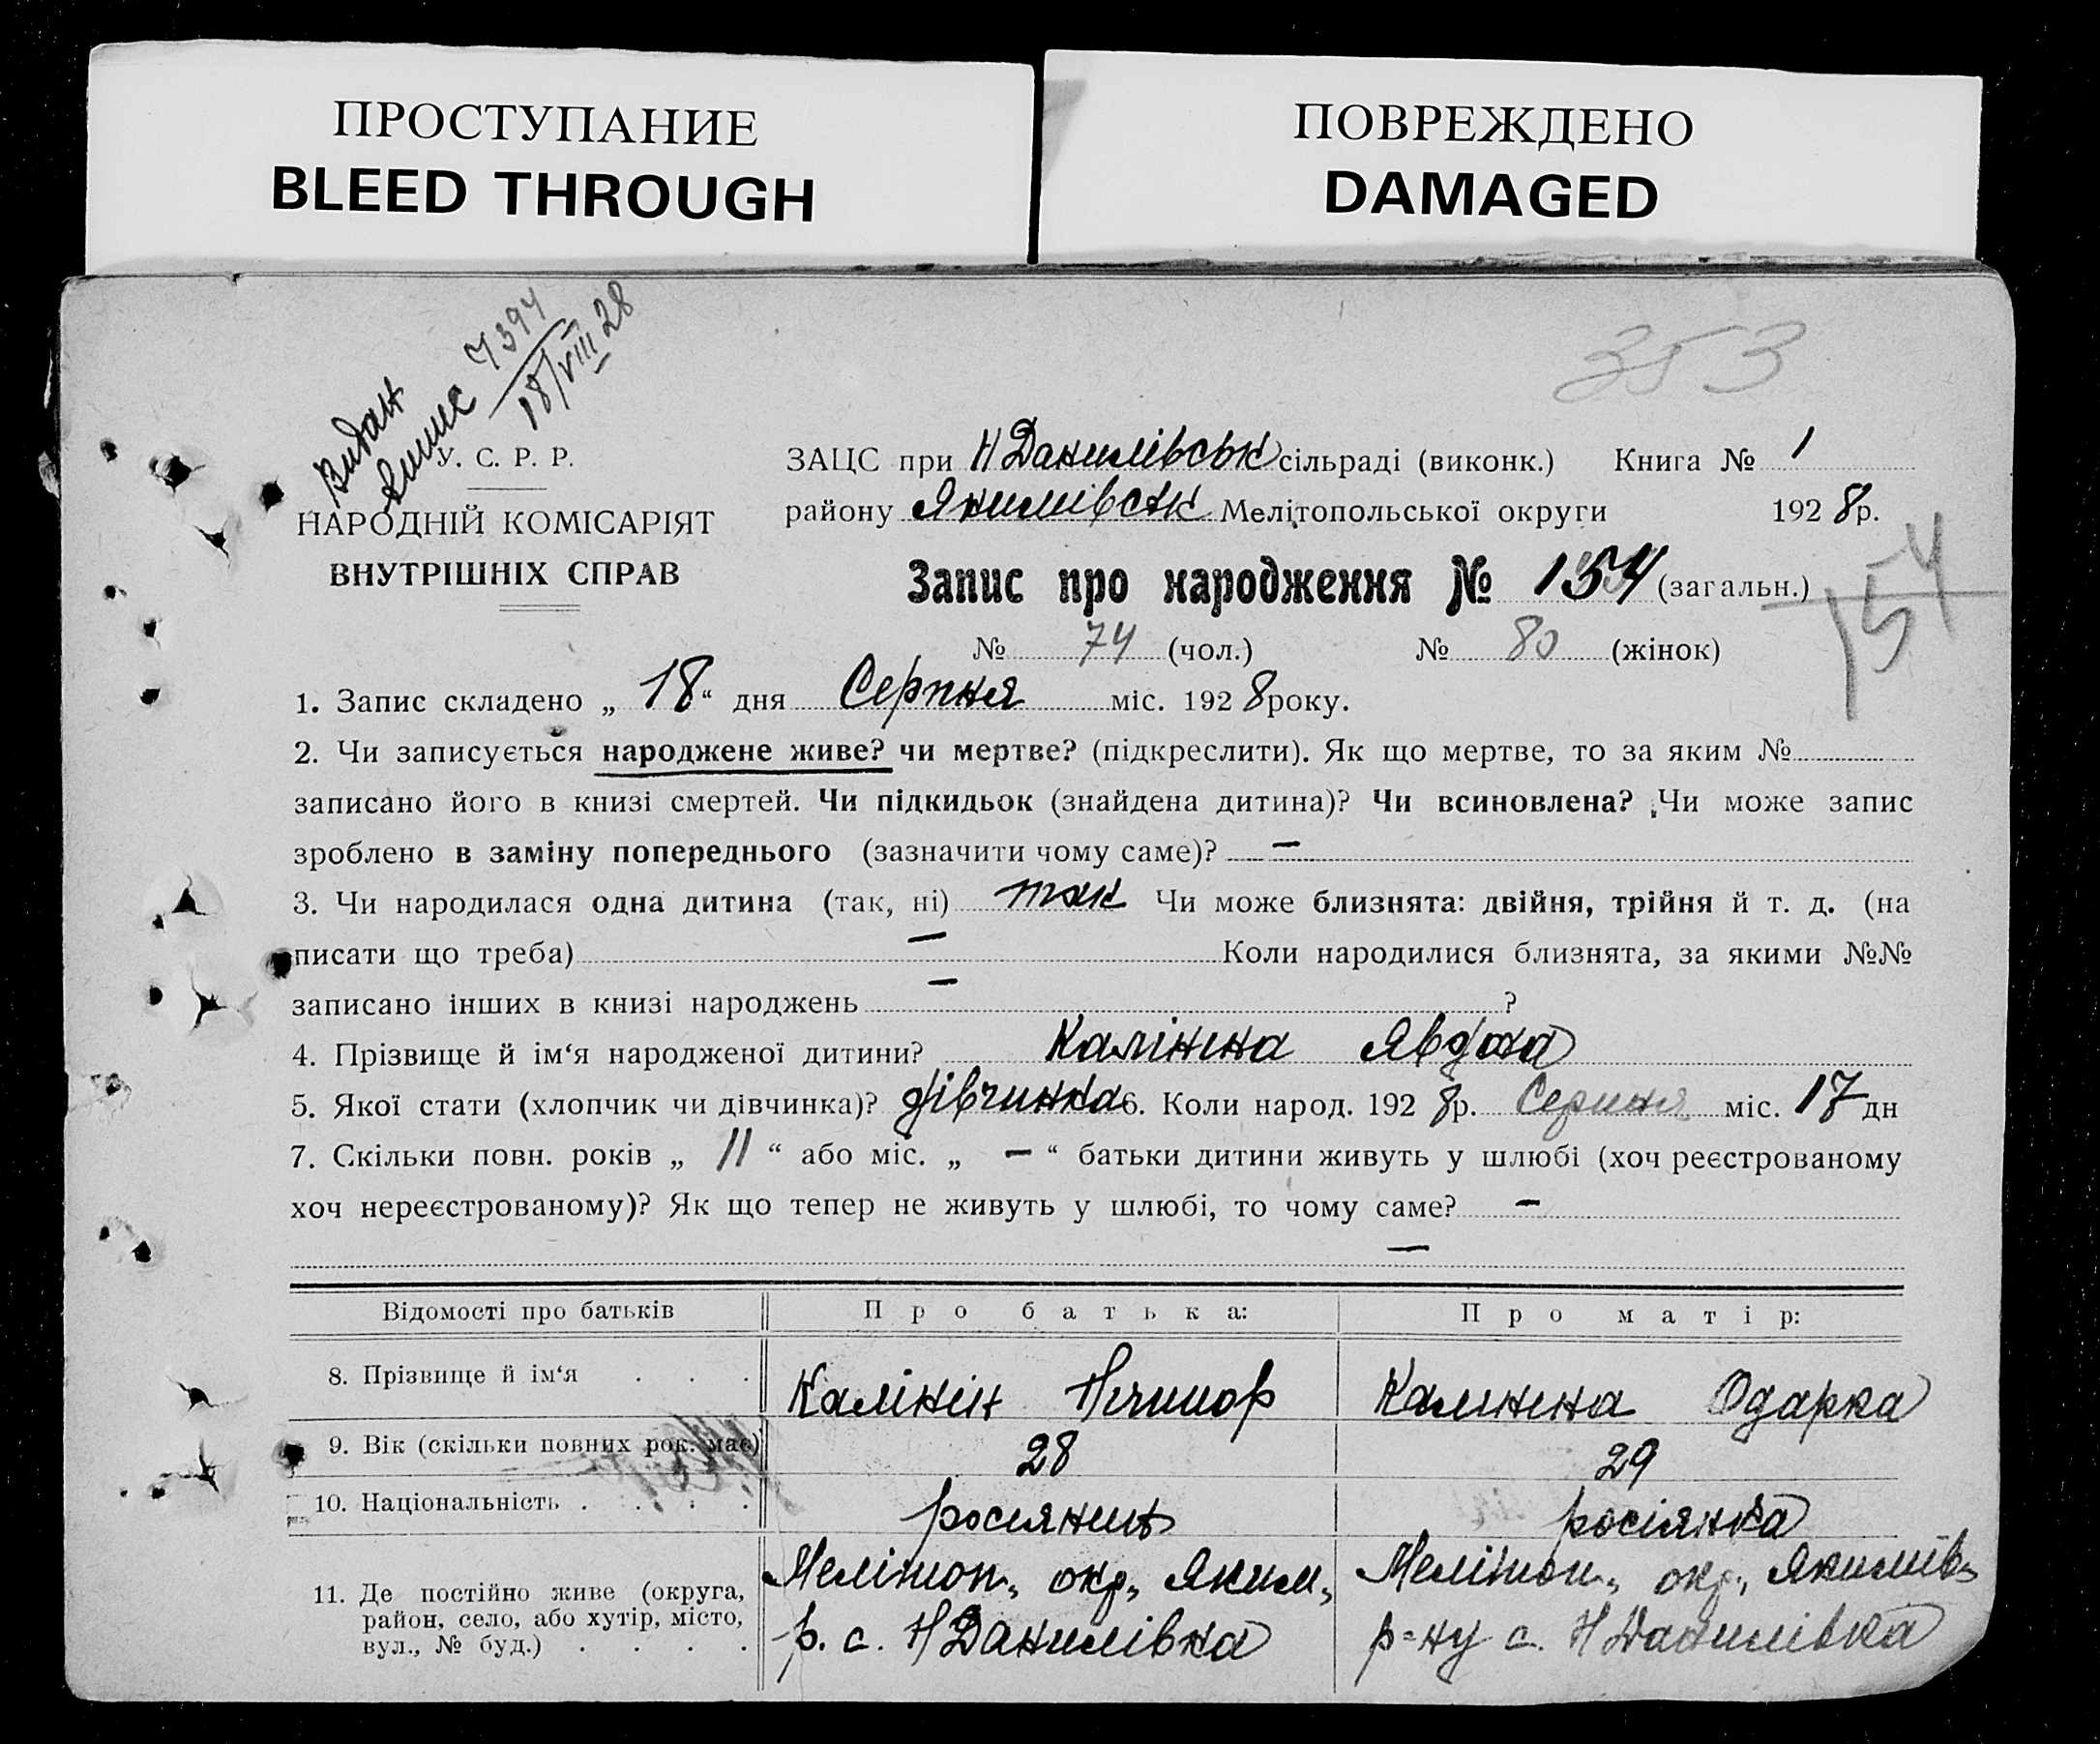 ПРОСТУПАНИЕ
BLEED THROUGH
ПОВРЕЖДЕНО
DAMAGED
353
Видан
7394
18/VIII 28
У. С. Р. Р.
НАРОДНІЙ КОМІСАРІЯТ
ВНУТРІШНІХ СПРАВ
ЗАЦС при Н Данилівськ сільраді (виконк.) Книга № 1
району Якимівськ Мелітопольської округи 1928 р.
Запис про народження № 154 (загальн.)
154
№ 74 (чол.) № 80 (жінок)
1. Запис складено „ 18 “ дня Серпня міс. 1928 року.
2. Чи записується народжене живе? чи мертве? (підкреслити). Як що мертве, то за яким №
записано його в книзі смертей. Чи підкидьок (знайдена дитина)? Чи всиновлена? Чи може запис
зроблено в заміну попереднього (зазначити чому саме)? —
3. Чи народилася одна дитина (так, ні) так Чи може близнята: двійня, трійня й т. д. (на
писати що треба) — Коли народилися близнята, за якими №№
записано інших в книзі народжень — ?
4. Прізвище й ім‘я народженої дитини? Калініна Явдоха
5. Якої стати (хлопчик чи дівчинка)? дівчинка 6. Коли народ. 1928 р. Серпня міс. 17 дн
7. Скільки повн. років „ 11 “ або міс. „ — “ батьки дитини живуть у шлюбі (хоч реєстрованому
хоч нереєстрованому)? Як що тепер не живуть у шлюбі, то чому саме? —
—
Відомості про батьків Про батька: Про матір:
8. Прізвище й ім‘я . . . Калінін Ничипор Калинина Одарка
9. Вік (скільки повних рок. має) 28 29
10. Національність . . . . росиянин росіянка
11. Де постійно живе (округа, район, село, або хутір, місто, вул., № буд.) . . . .
Мелітоп. окр., Яким.,
р. с. Н Данилівка
Мелітоп. окр., Якимів.
р=ну с. Н Данилівка